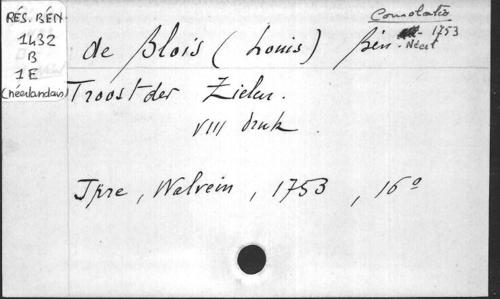 RÉS. BÉN
1432
B
1E
(néerlandais)
Consolatio
1753
Néerl
de Blois (Louis) Bén.
Troost der Zielen.
VIII druk
Ipre, Walvein, 1753, 16°